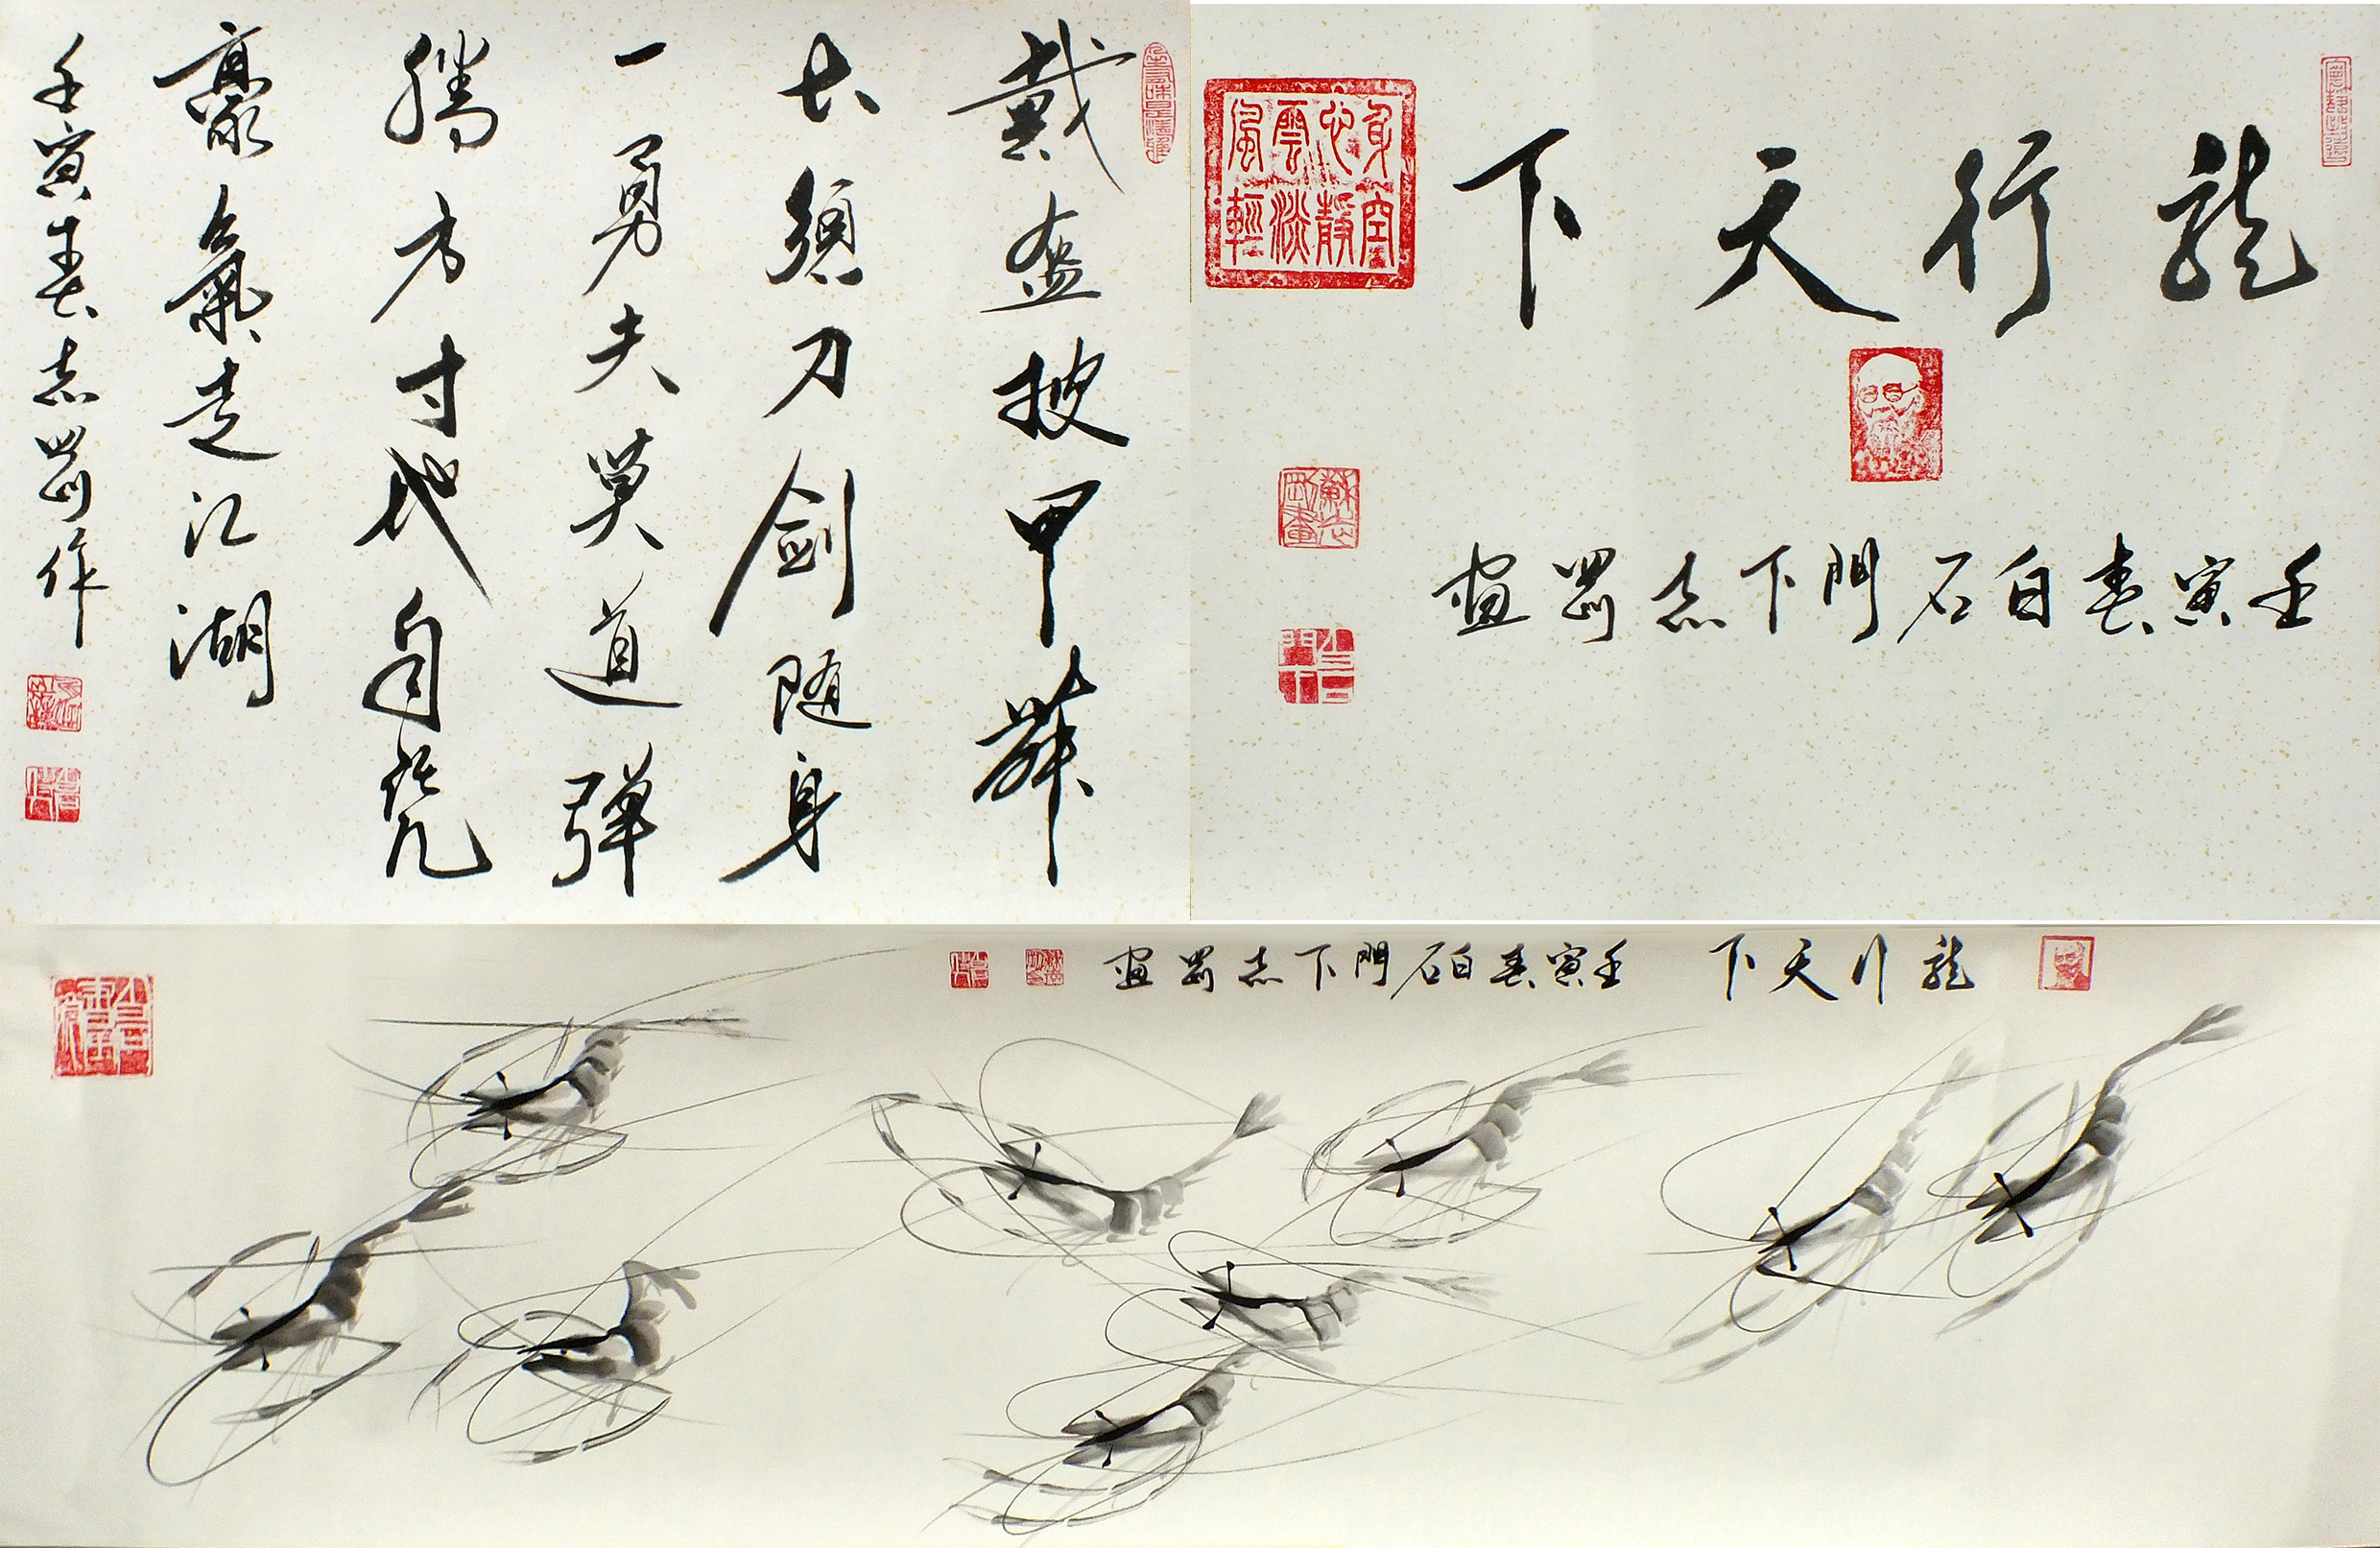 龍行天下
壬寅春白石門下志畫
身空
心靜
雲淡
風輕
戴盔披甲舞
长須刀剑随身
一勇夫莫道弹
腾方寸地自凭
豪氣走江湖
壬寅春志作
龍行天下
壬寅春白石門下志畫